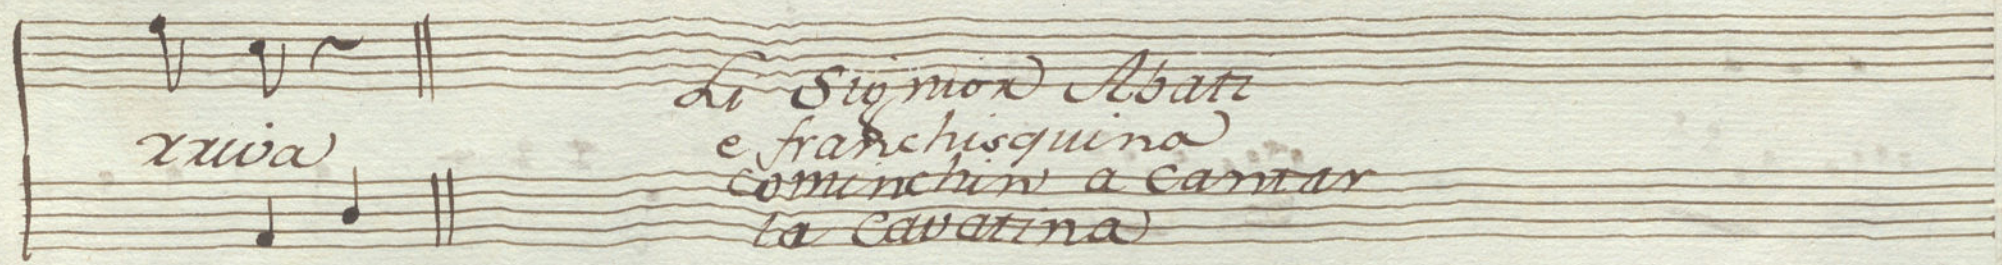 Li Signior Abati
rriva
e franchisquina
cominchin a cantar
la Cavatina